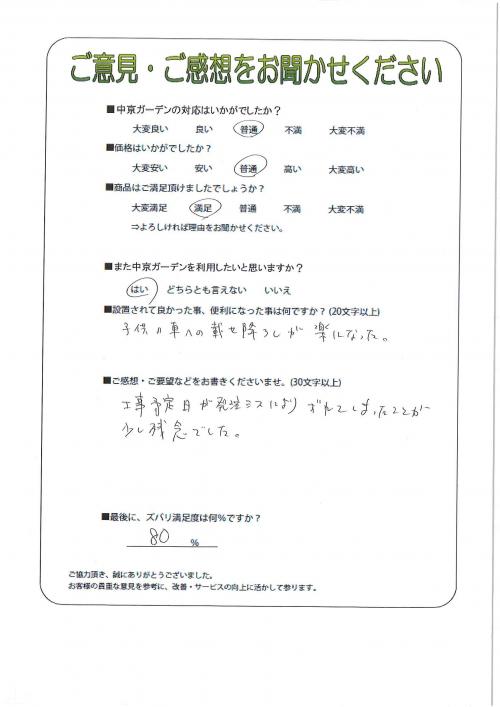 ご意見・ご感想をお聞かせください
■中京ガーデンの対応はいかがでしたか？
大変良い 良い 普通 不満 大変不満
■価格はいかがでしたか？
大変安い 安い 普通 高い 大変高い
■商品はご満足頂けましたでしょうか？
大変満足 満足 普通 不満 大変不満
⇒よろしければ理由をお聞かせください。
■また中京ガーデンを利用したいと思いますか？
はい どちらとも言えない いいえ
■設置されて良かった事、便利になった事は何ですか？(20文字以上)
子供の車への載せ降ろしが楽になった。
■ご感想・ご要望などをお書きくださいませ。(30文字以上)
工事予定日が発注ミスにより ずれてしまったことが
少し残念でした。
■最後に、ズバリ満足度は何％ですか？
80 ％
ご協力頂き、誠にありがとうございました。
お客様の貴重な意見を参考に、改善・サービスの向上に活かして参ります。